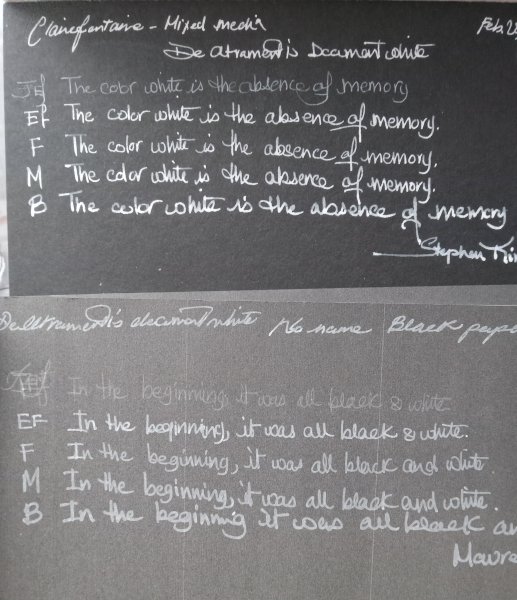 Clairefontaine - Mixed media Feb. 23
De atramentis Document white
The color white is the absence of memory
EF The color white is the absence of memory.
F The color white is the absence of memory.
M The color white is the absence of memory.
B The color white is the absence of memory
Stephen Kin
De atramentis document white No name Black pape
In the beginning, it was all black & white
EF In the beginning, it was all black & white.
F In the beginning, it was all black and white.
M In the beginning, it was all black and white.
B In the beginning it was all black an
Maure